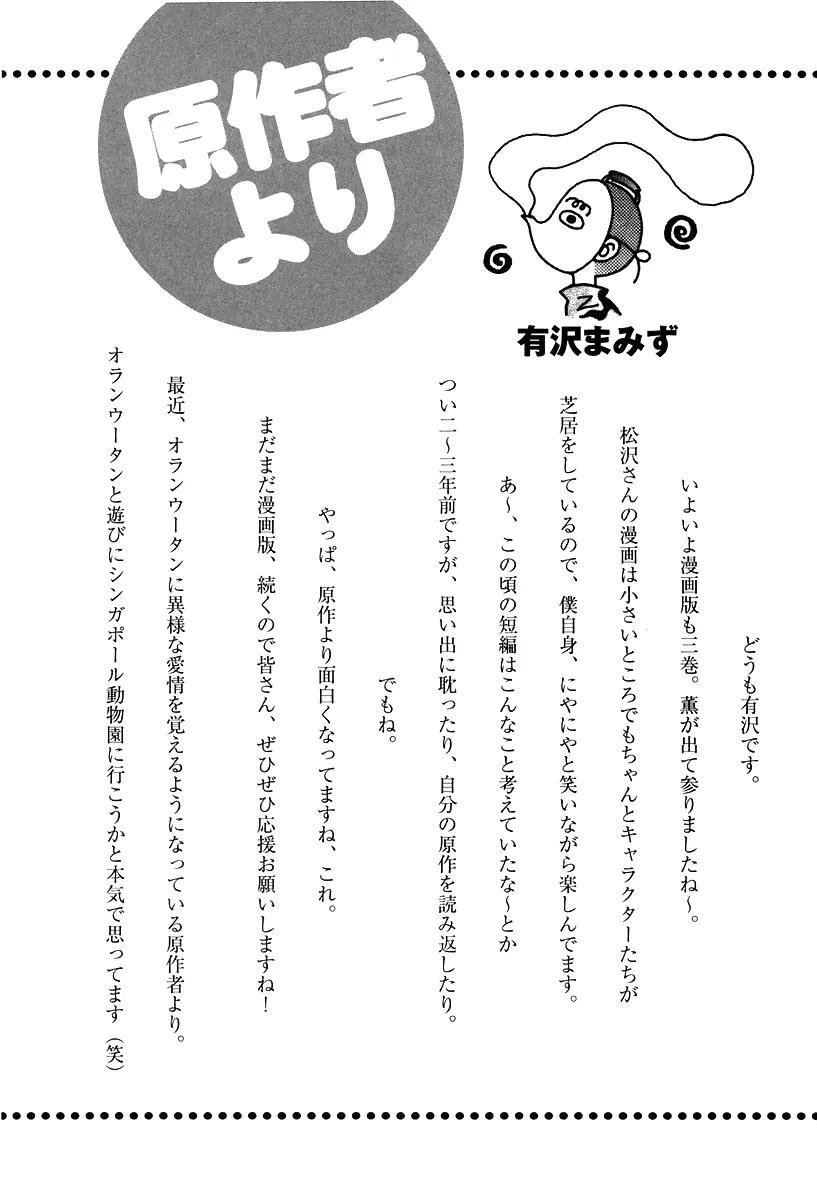 原作者
より
有沢まみず
どうも有沢です。
いよいよ漫画版も三巻。薫が出て参りましたね～。
松沢さんの漫画は小さいところでもちゃんとキャラクターたちが
芝居をしているので、僕自身、にやにやと笑いながら楽しんでます。
あ～、この頃の短編はこんなこと考えていたな～とか
つい二～三年前ですが、思い出に耽ったり、自分の原作を読み返したり。
でもね。
やっぱ、原作より面白くなってますね、これ。
まだまだ漫画版、続くので皆さん、ぜひぜひ応援お願いしますね！
最近、オランウータンに異様な愛情を覚えるようになっている原作者より。
オランウータンと遊びにシンガポール動物園に行こうかと本気で思ってます（笑）